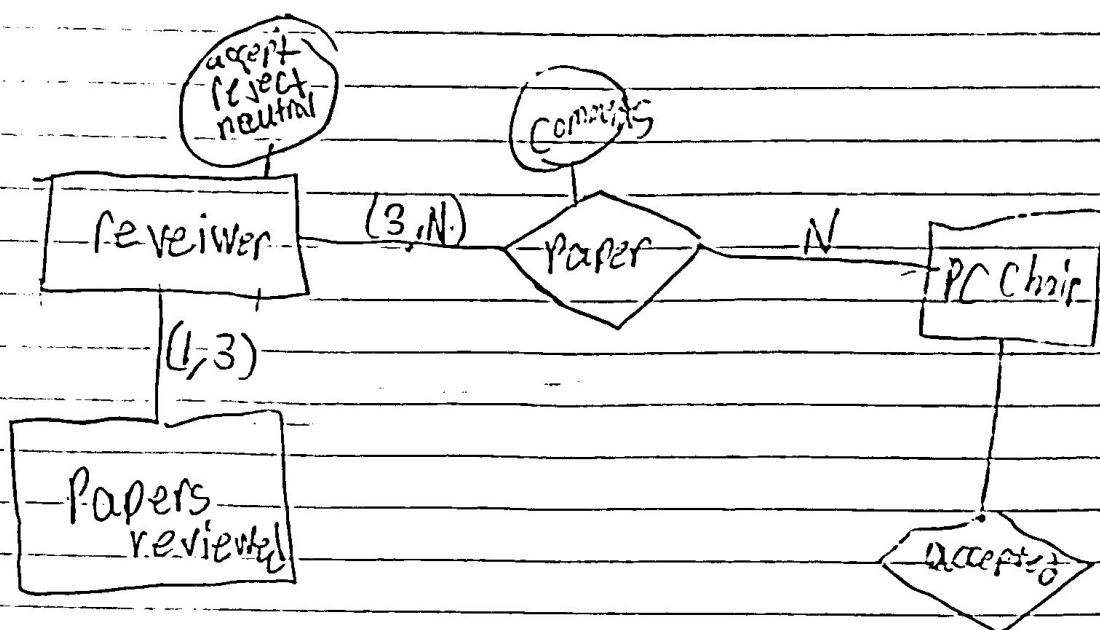 accept
reject
neutral
Comments
reveiwer
(3,N)
paper
N
PC Chair
(1,3)
Papers
reviewed
accepted